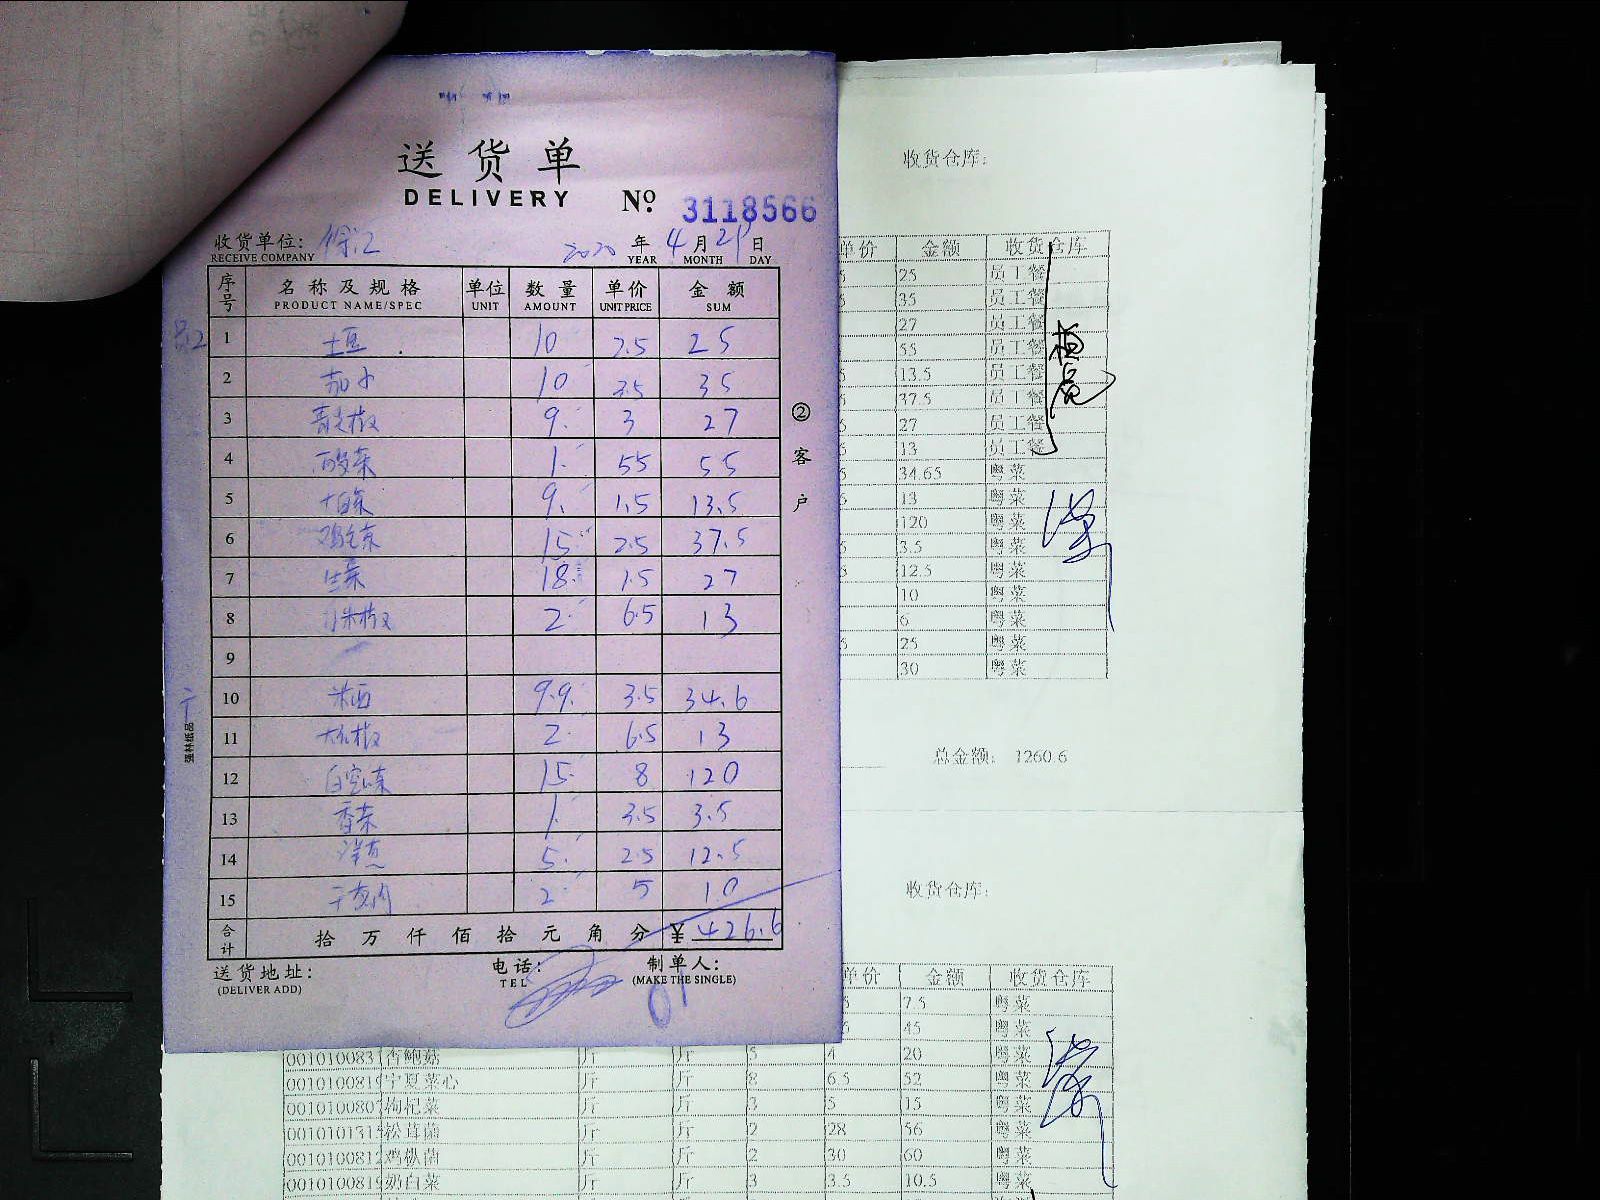 送货单
DELIVERY
Nº 3118566
收货单位: 徐汇 2020 年 4 月 21 日
RECEIVE COMPANY YEAR MONTH DAY
序号 名称及规格 单位 数量 单价 金额
PRODUCT NAME/SPEC UNIT AMOUNT UNIT PRICE SUM
1 土豆 10 2.5 25
2 茄子 10 3.5 35
3 青尖椒 9. 3 27
4 酸菜 1. 55 55
5 大白菜 9. 1.5 13.5
6 鸡毛菜 15 2.5 37.5
7 生菜 18. 1.5 27
8 小米椒 2. 6.5 13
9
10 米西 9.9. 3.5 34.6
11 大红椒 2. 6.5 13
12 白空心菜 15. 8 120
13 香菜 1. 3.5 3.5
14 洋葱 5. 2.5 12.5
15 2 5 10
合计 拾 万 仟 佰 拾 元 角 分 ¥ 426.6
送货地址: 电话: 制单人:
(DELIVER ADD) TEL (MAKE THE SINGLE)
② 客户
强林纸品
收货仓库:
单价 金额 收货仓库
25 员工餐
35 员工餐
27 员工餐
55 员工餐
13.5 员工餐
37.5 员工餐
27 员工餐
13 员工餐
34.65 粤菜
13 粤菜
120 粤菜
3.5 粤菜
12.5 粤菜
10 粤菜
6 粤菜
25 粤菜
30 粤菜
总金额: 1260.6
收货仓库:
单价 金额 收货仓库
7.5 粤菜
45 粤菜
001010083 杏鲍菇 斤 斤 5 4 20 粤菜
001010081 宁夏菜心 斤 斤 8 6.5 52 粤菜
001010080 枸杞菜 斤 斤 3 5 15 粤菜
001010131 松茸菌 斤 斤 2 28 56 粤菜
001010081 鸡枞菌 斤 斤 2 30 60 粤菜
001010081 奶白菜 斤 斤 3 3.5 10.5 粤菜